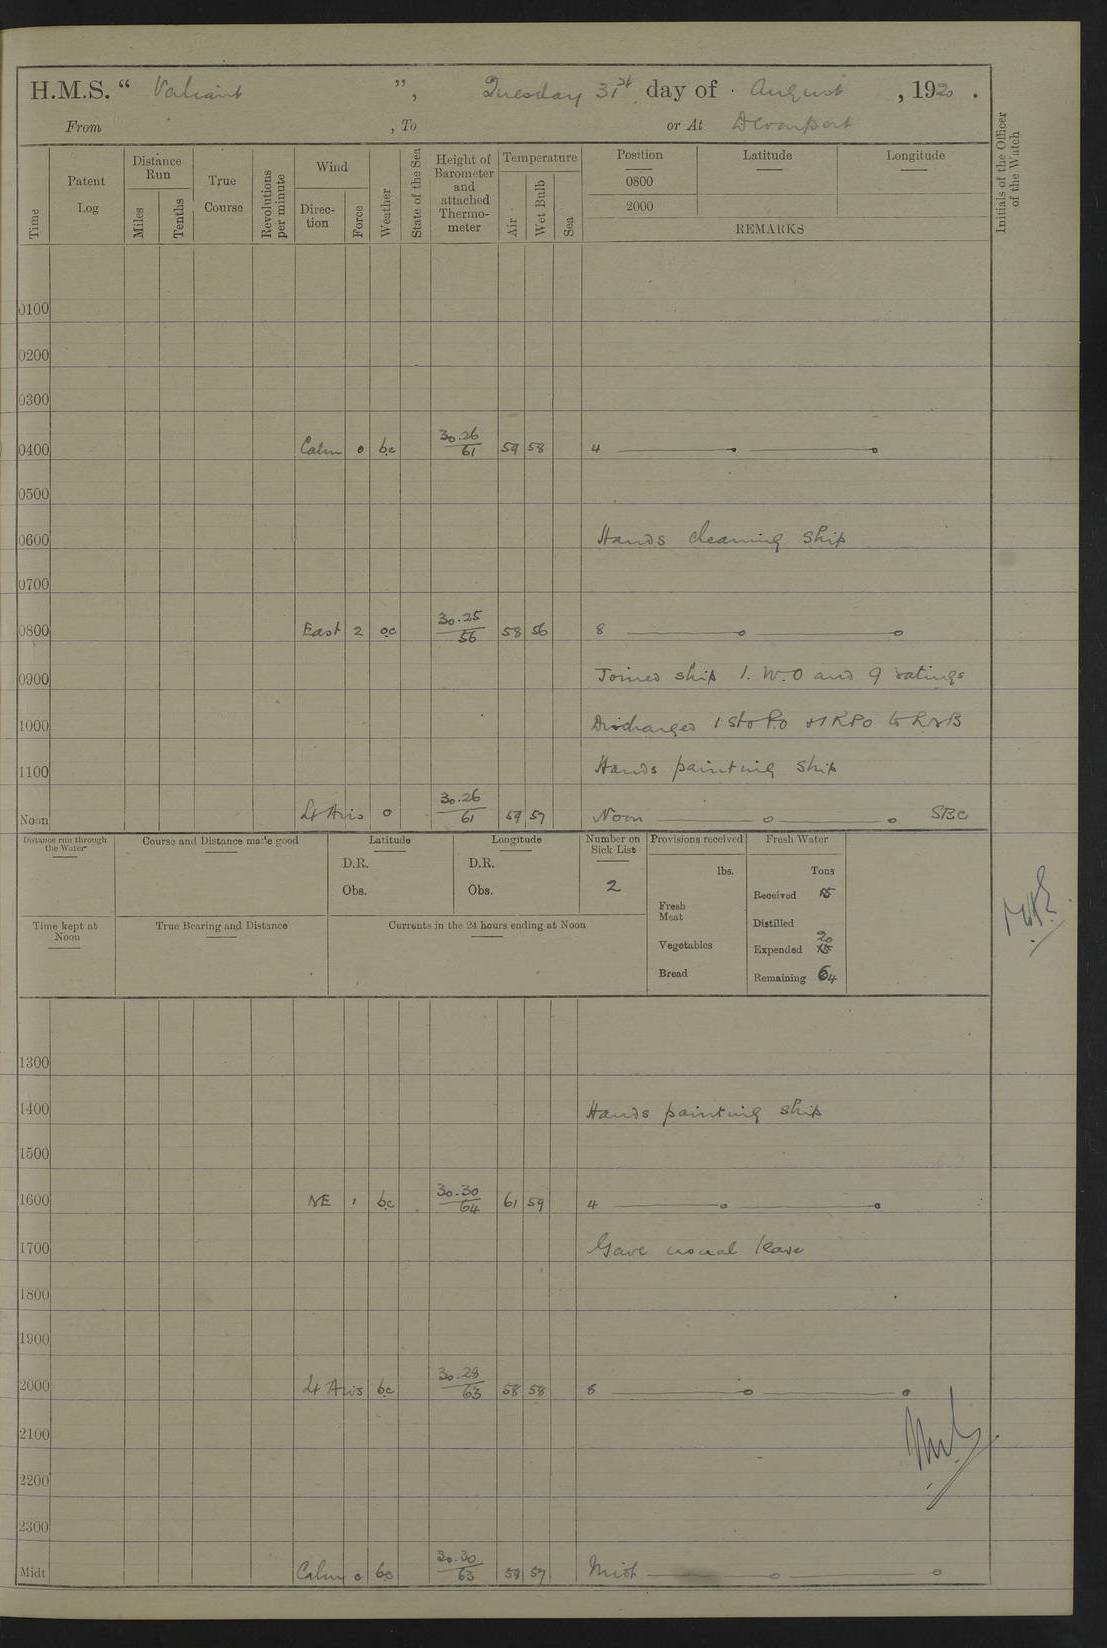 H.M.S. “ Valiant ”, Tuesday 31st day of August , 1920 .
From , To or At Devonport
Time Patent Log Distance Run Miles Tenths True Course Revolutions per minute Wind Direc-tion Force Weather State of the Sea Height of Barometer and attached Thermo-meter Temperature Air Wet Bulb Sea Position Latitude Longitude Initials of the Officer of the Watch
0800
2000
REMARKS
0100
0200
0300
0400 Calm 0 bc 30.26/61 59 58 4
0500
0600 Hands cleaning ship
0700
0800 East 2 oc 30.25/56 58 56 8
0900 Joined ship 1. W.O and 9 ratings
1000 Discharged 1 Sto P.o & 1 RPO to RNB
1100 Hands painting ship
Noon Lt Airs o 30.26/61 59 57 Noon SBC
Distance run through the Water Course and Distance made good Latitude Longitude Number on Sick List Provisions received Fresh Water
D.R. D.R. lbs. Tons
Obs. Obs. 2 Received 15
Fresh Meat Distilled
Time kept at Noon True Bearing and Distance Currents in the 24 hours ending at Noon
Vegetables Expended 20
Bread Remaining 64
1300
1400 Hands painting ship
1500
1600 NE 1 bc 30.30/64 61 59 4
1700 Gave usual leave
1800
1900
2000 Lt Airs bc 30.28/63 58 58 8
2100
2200
2300
Midt Calm 0 bc 30.30/63 58 57 Midt